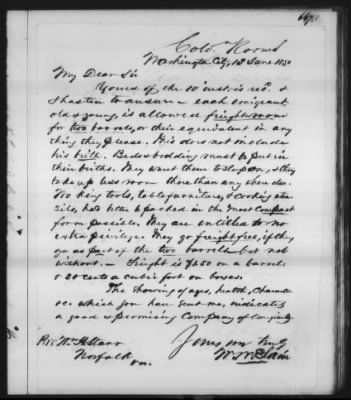 Colo. Rooms
Washington City, 18 June 185
My Dear Sir
Yours of the 10 inst. is rec. &
I hasten to answer – each emigrant,
old & young, is allowed freight room
for two barrels, or their equivalent in any
thing they please. This does not include
his birth. Beds & bedding must be put in
their births. They want them to sleep on, & they
take up less room there than any where else.
Working tools, table furniture, & cooking uten
sils, had better be packed in the most compact
form possible. They are entitled to no
extra privilege. They go freight free, if they
go as part of the two barrels but not
without. – Freight is $1.50 on a barrel
& 30 cents a cubic foot on boxes.
The showing of ages, health, character
&c. which you have sent me, indicates
a good & promising company of emigrants.
Yours very truly
Rev. Wm. W. McLain
Norfolk
Va.